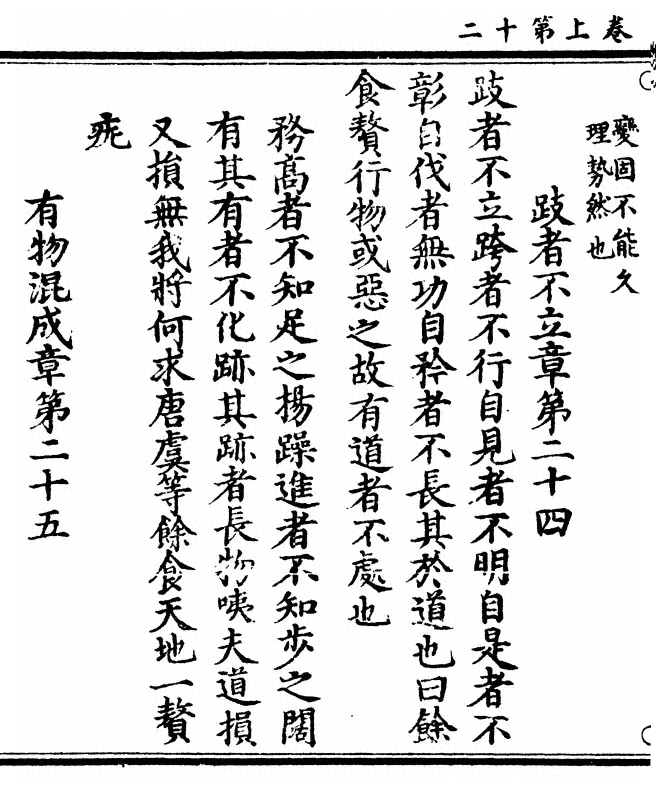 卷上第十二
變固不能久
理勢然也
跂者不立章第二十四
跂者不立跨者不行自見者不明自是者不
彰自伐者無功自矜者不長其於道也曰餘
食贅行物或惡之故有道者不處也
務高者不知足之揚躁進者不知步之闊
有其有者不化跡其跡者長物咦夫道損
又損無我將何求唐虞等餘食天地一贅
疣
有物混成章第二十五